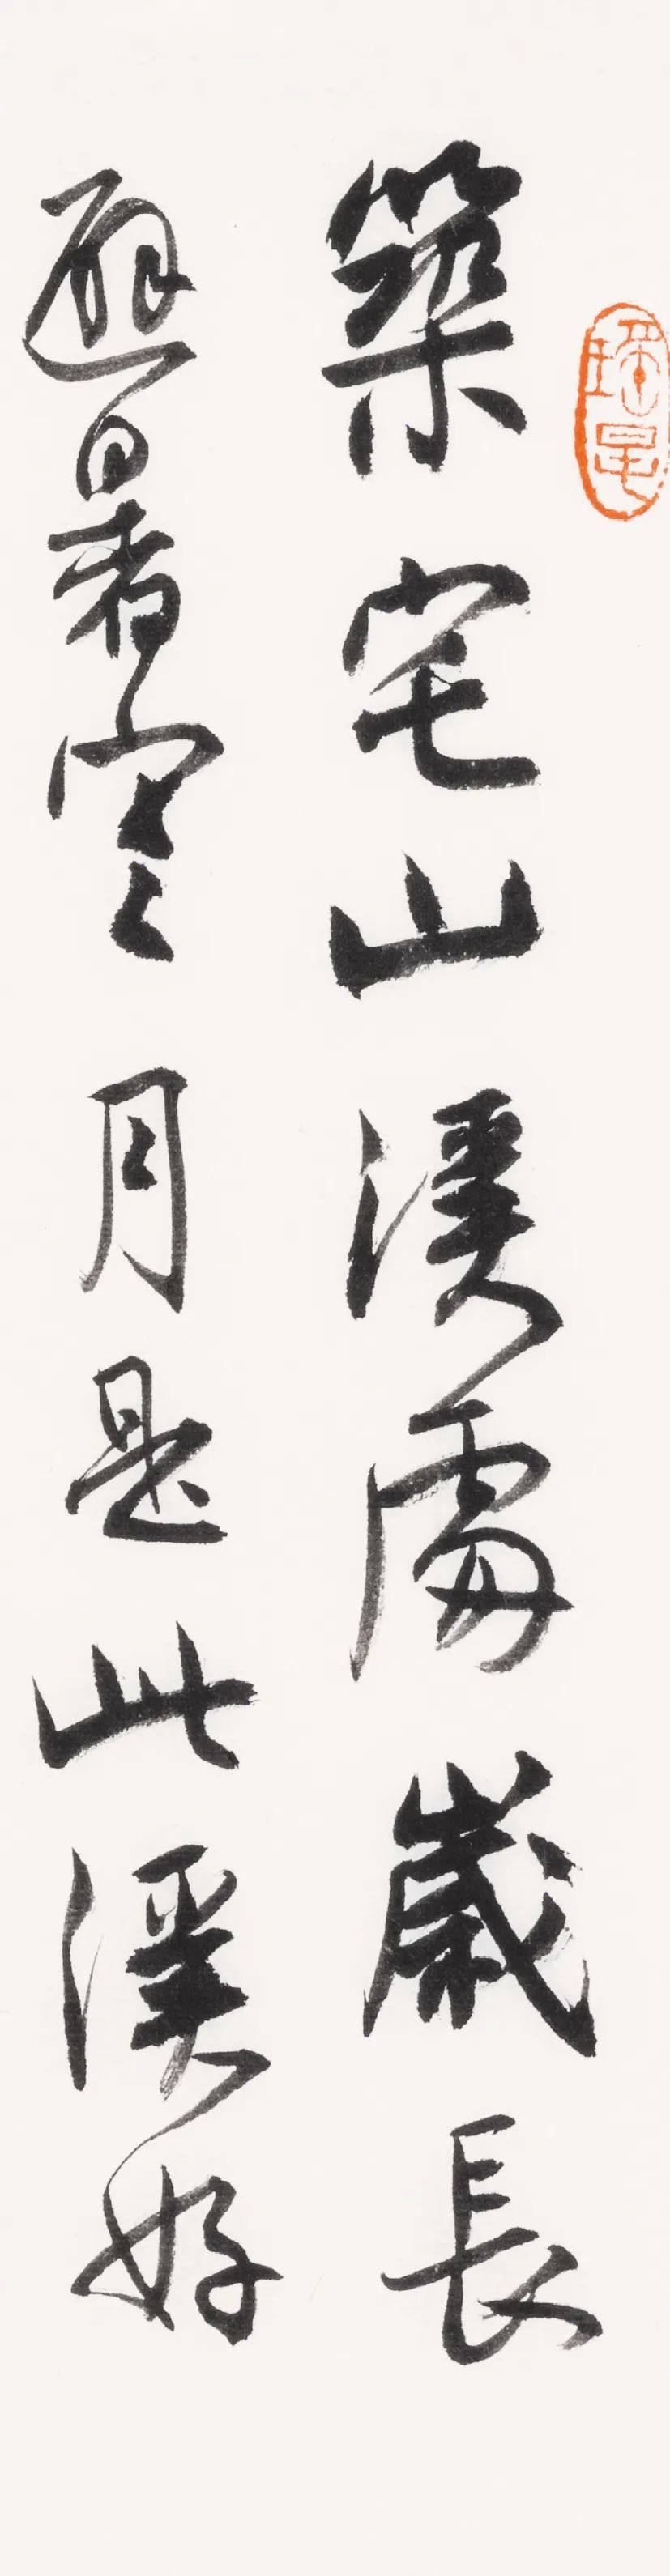 築宅山溪處歲長
避暑寒月是此溪好